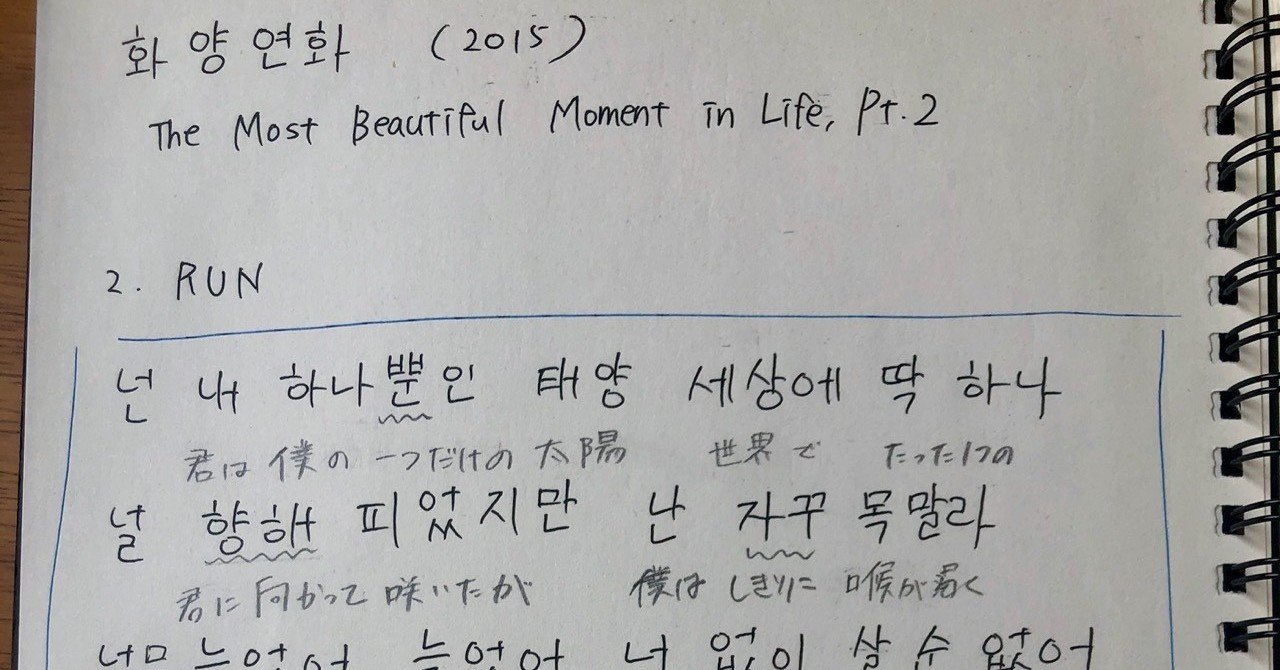 화양연화 (2015)
The Most Beautiful Moment in Life, Pt.2
2. RUN
넌 내 하나뿐인 태양 세상에 딱 하나
君は僕の 一つだけの 太陽 世界で たった1つの
널 향해 피었지만 난 자꾸 목말라
君に向かって 咲いたが 僕は しきりに 喉が渇く
너무 늦었어 늦었어 너 없이 살 수 없어